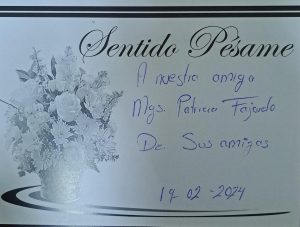 Sentido Pésame
A nuestra amiga
Mgs. Patricia Fajardo
De. Sus amigas
19-02-2024